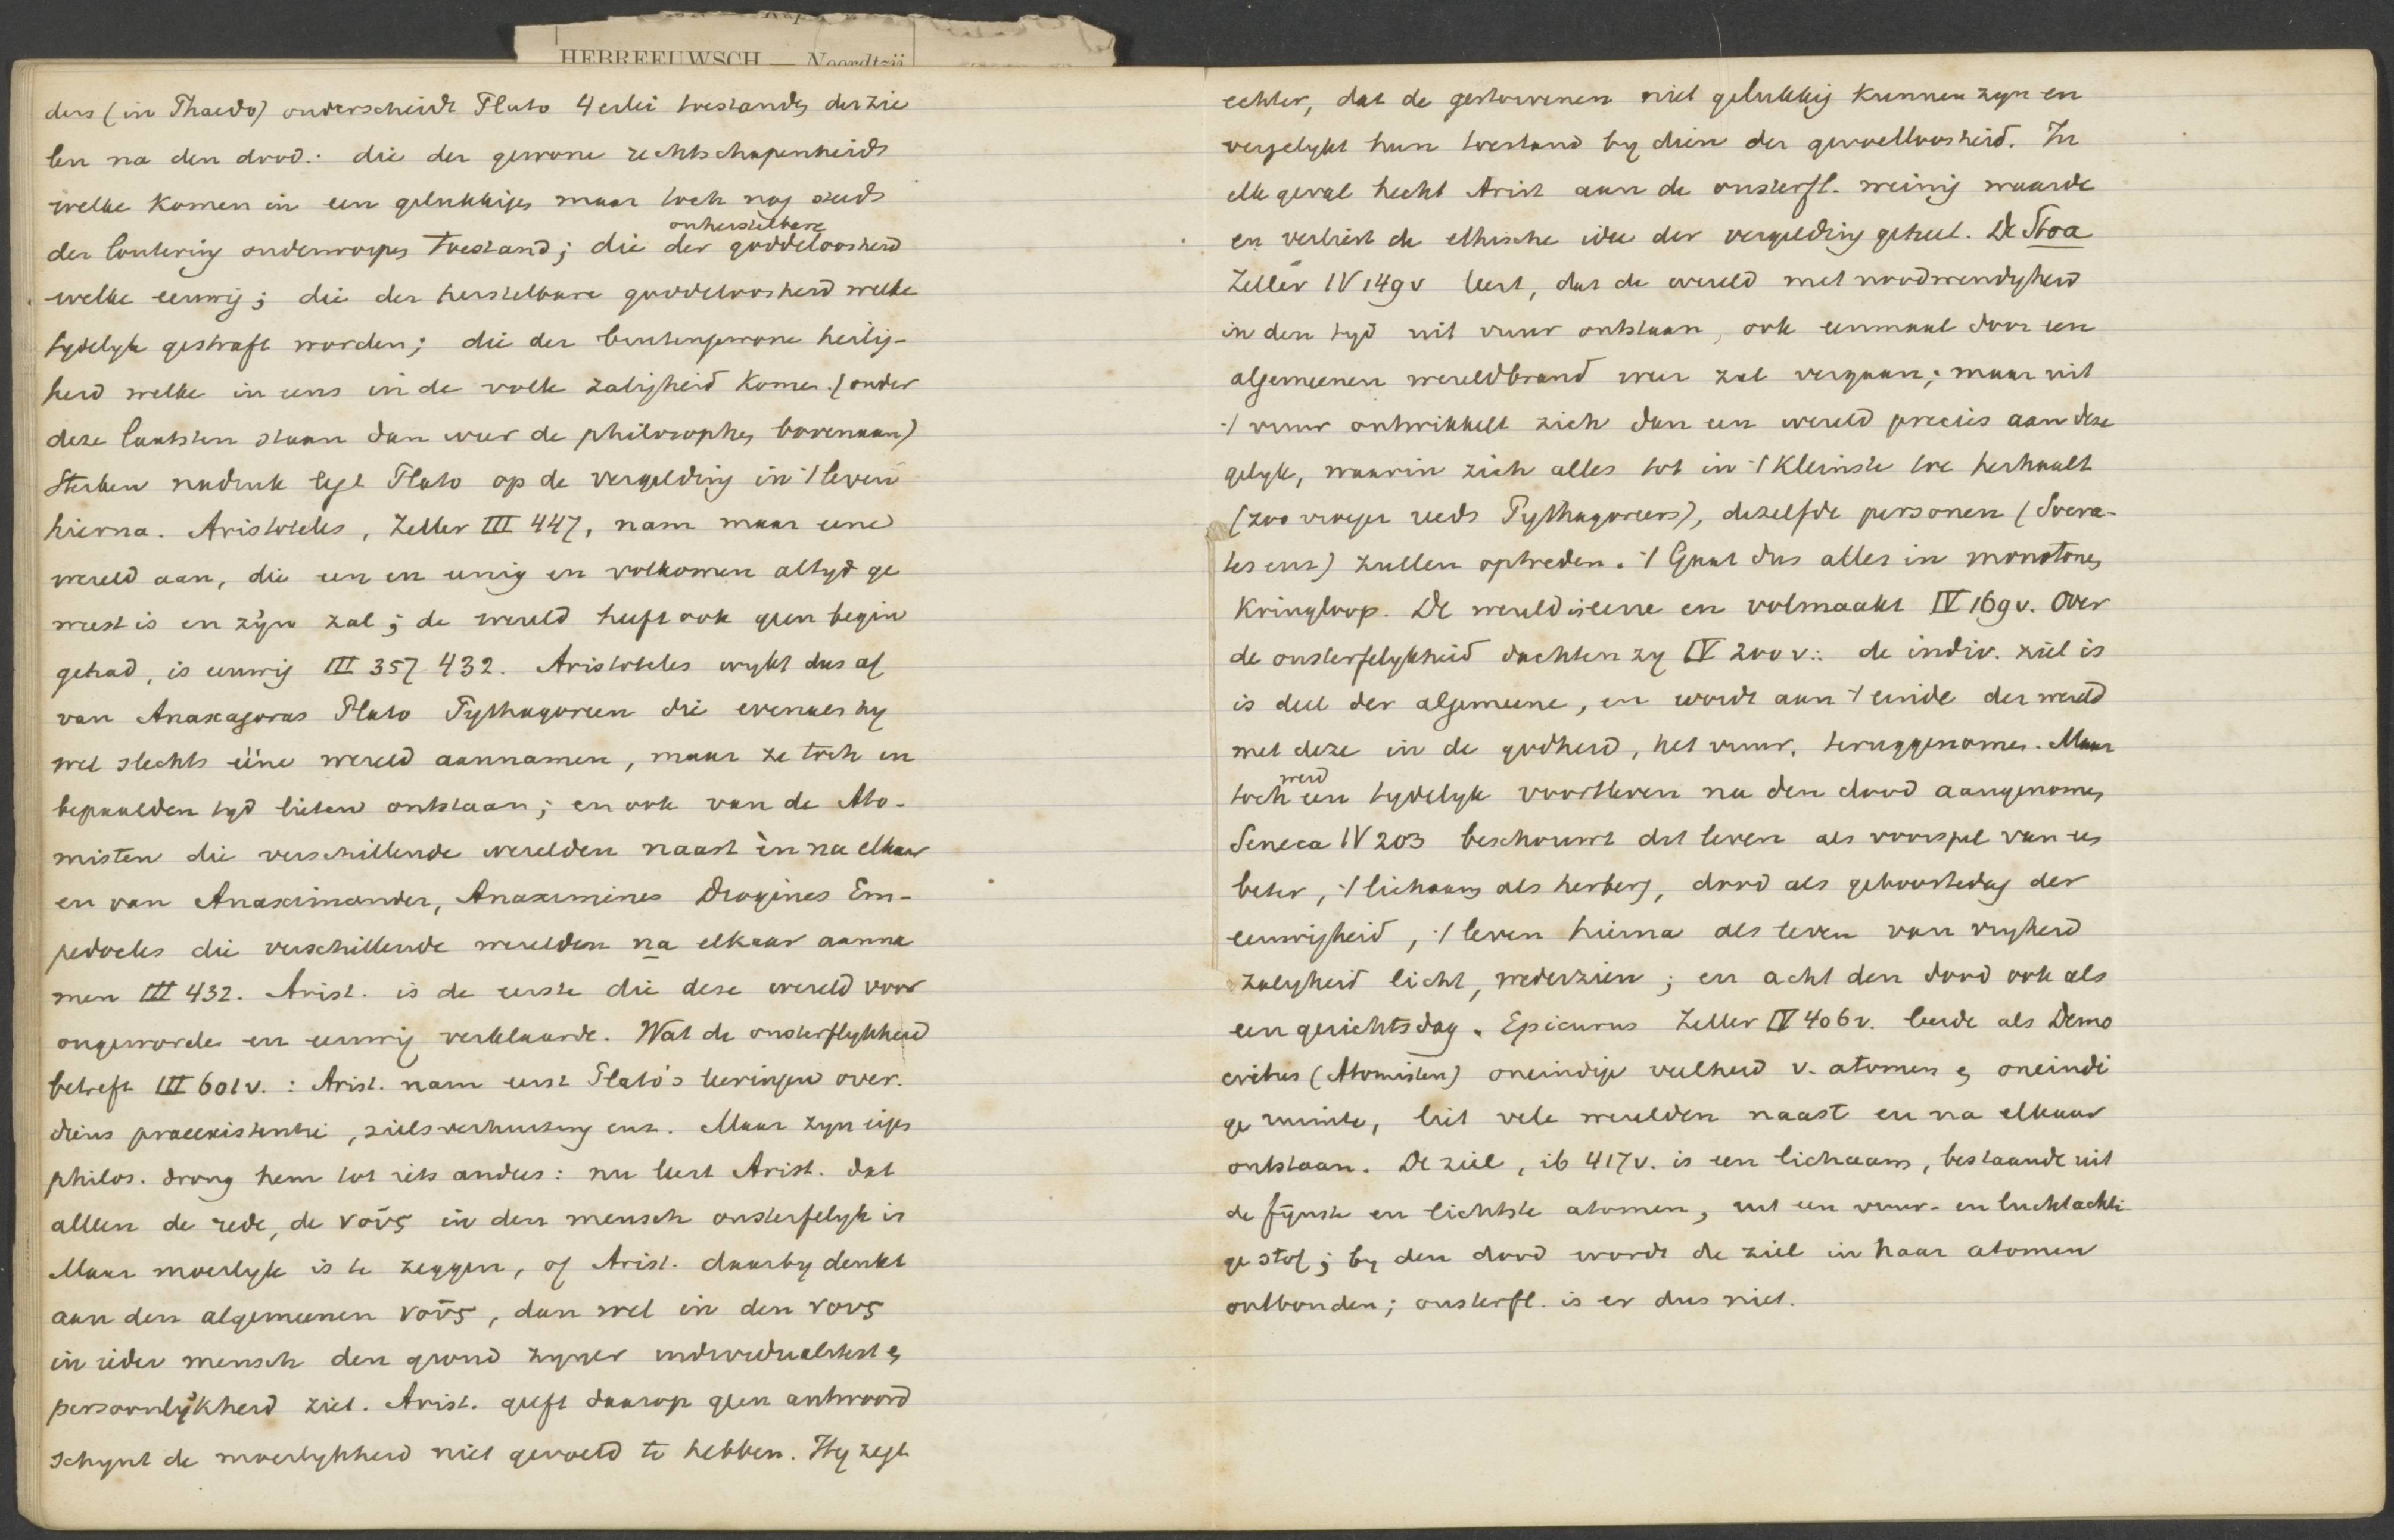 HEBREEUWSCH — Noordtzij
ders (in Phaedo) onderscheidt Plato 4 erlei toestanden der zie
len na den dood: die der gewone rechtschapenheid
welke komen in een gelukkigen maar toch nog steeds
onherstelbare
der loutering onderworpen toestand; die der goddeloosheid
welke eeuwig; die der herstelbare goddeloosheid welke
tydelyk gestraft worden; die der buitengewone heilig-
heid welke in eens in de volle zaligheid komen. (onder
deze laatsten staan dan weer de philosophen bovenaan)
Sterken nadruk legt Plato op de vergelding in 't leven
hierna. Aristoteles, Zeller III 447, nam maar eene
wereld aan, die een en eenig en volkomen altyd ge
weest is en zijn zal; de wereld heeft ook geen begin
gehad, is eeuwig III 357 432. Aristoteles wykt dus af
van Anaxagoras Plato Pythagoreen die evenals hy
wel slechts ééne wereld aannamen, maar ze toch in
bepaalden tyd lieten ontstaan; en ook van de Ato-
misten die verschillende werelden naast èn na elkaar
en van Anaximander, Anaximines Diogines Em-
pedocles die verschillende werelden na elkaar aanna
men III 432. Arist. is de eerste die deze wereld voor
ongeworden en eeuwig verklaarde. Wat de onsterflykheid
betreft III 601 v. : Arist. nam eerst Plato's leeringen over.
diens praeexistentie, zielsverhuizing enz. Maar zyn eigen
philos. drong hem tot iets anders: nu leert Arist. dat
alleen de rede, de νοῦς in den mensch onsterfelyk is
Maar moeilyk is te zeggen, of Arist. daarby denkt
aan den algemeenen νοῦς, dan wel in den νους
in ieder mensch den grond zyner individualiteit en
persoonlijkheid ziet. Arist. geeft daarop geen antwoord
schynt de moeilykheid niet gevoeld te hebben. Hy zegt
echter, dat de gestorvenen niet gelukkig kunnen zyn en
vergelykt hun toestand by dien der gevoelloosheid. In
elk geval hecht Arist aan de onsterfl. weinig waarde
en verliest de ethische idee der vergelding geheel. De Stoa
Zeller IV 149 v leert, dat de wereld met noodwendigheid
in den tyd uit vuur ontstaan, ook eenmaal door een
algemeenen wereldbrand weer zal vergaan; maar uit
't vuur ontwikkelt zich dan een wereld precies aan deze
gelyk, waarin zich alles tot in 't kleinste toe herhaalt
(zoo vroeger reeds Pythagoreers), dezelfde personen (Socra-
tes enz) zullen optreden. 't Gaat dus alles in monotonen
Kringloop. De wereld is eene en volmaakt IV 169 v. Over
de onsterfelykheid dachten zy IV 200 v.: de indiv. ziel is
is deel der algemeene, en wordt aan 't einde der wereld
met deze in de godheid, het vuur, teruggenomen. Maar
werd
toch een tydelyk voortleven na den dood aangenomen
Seneca IV 203 beschouwt dit leven als voorspel van een
beter, 't lichaam als herberg, dood als geboortedag der
eeuwigheid, 't leven hierna als leven van vryheid
zaligheid licht, wederzien; en acht den dood ook als
een gerichtsdag. Epicurus Zeller IV 406 v. leerde als Demo
critus (Atomisten) oneindige veelheid v. atomen en oneindi
ge ruimte, liet vele werelden naast en na elkaar
ontstaan. De ziel, ib 417 v. is een lichaam, bestaande uit
de fijnste en lichtste atomen, uit een vuur- en luchtachti
ge stof; by den dood wordt de ziel in haar atomen
ontbonden; onsterfl. is er dus niet.